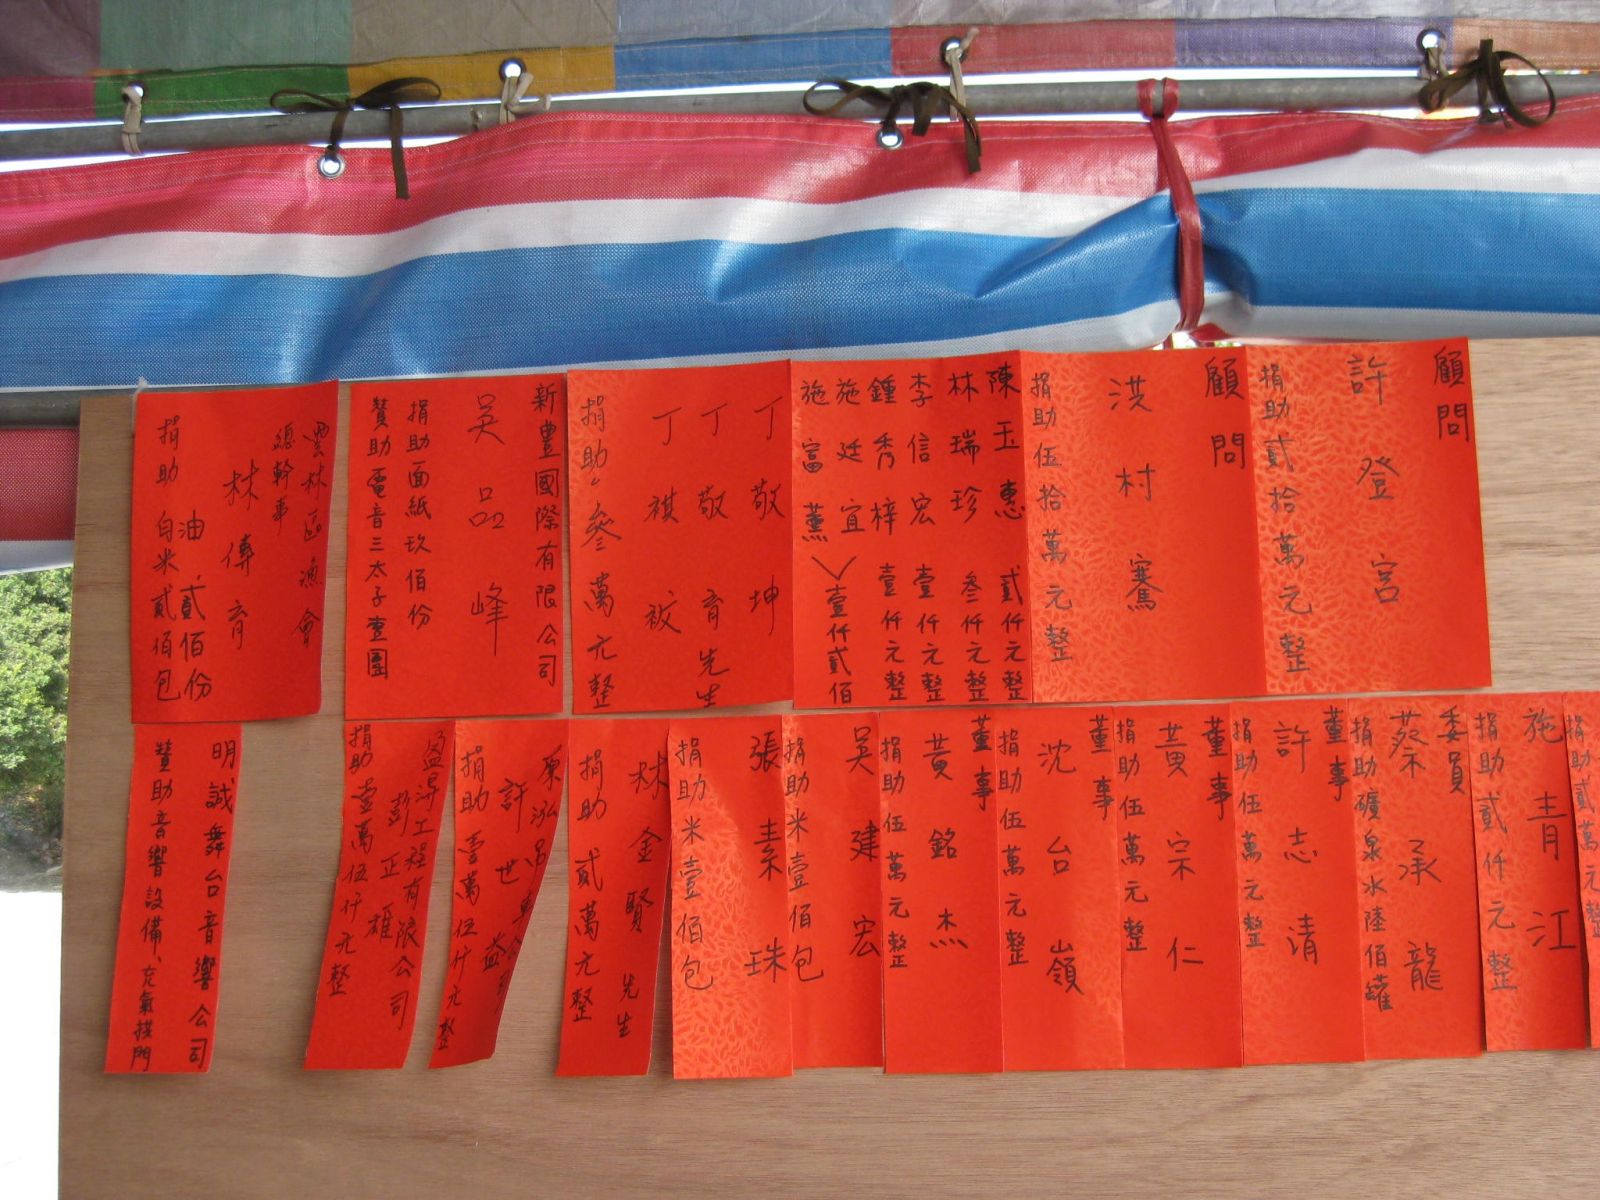 顧問
許登宮
捐助貳拾萬元整
顧問
洪村騫
捐助伍拾萬元整
陳玉惠 貳仟元整
林瑞珍 叄仟元整
李信宏 壹仟元整
鍾秀梓 壹仟元整
施廷宜
施富薰
壹仟貳佰
丁敬坤
丁敬育先生
丁祺被
捐助叄萬元整
新豊國際有限公司
吳品峰
捐助面紙玖佰份
贊助電音三太子壹團
雲林區漁會
總幹事
林傳育
油貳佰份
捐助 白米貳佰包
捐助貳萬元整
施青江
捐助貳仟元整
委員
蔡承龍
捐助礦泉水陸佰罐
董事
許志清
捐助伍萬元整
董事
黃宗仁
捐助伍萬元整
董事
沈台嶺
捐助伍萬元整
董事
黃銘杰
捐助伍萬元整
吳建宏
捐助米壹佰包
張素珠
捐助米壹佰包
林金賢 先生
捐助 貳萬元整
許世益
捐助壹萬伍仟元整
工程有限公司
彭正雄
捐助壹萬伍仟元整
明誠舞台音響公司
贊助音響設備、充氣拱門